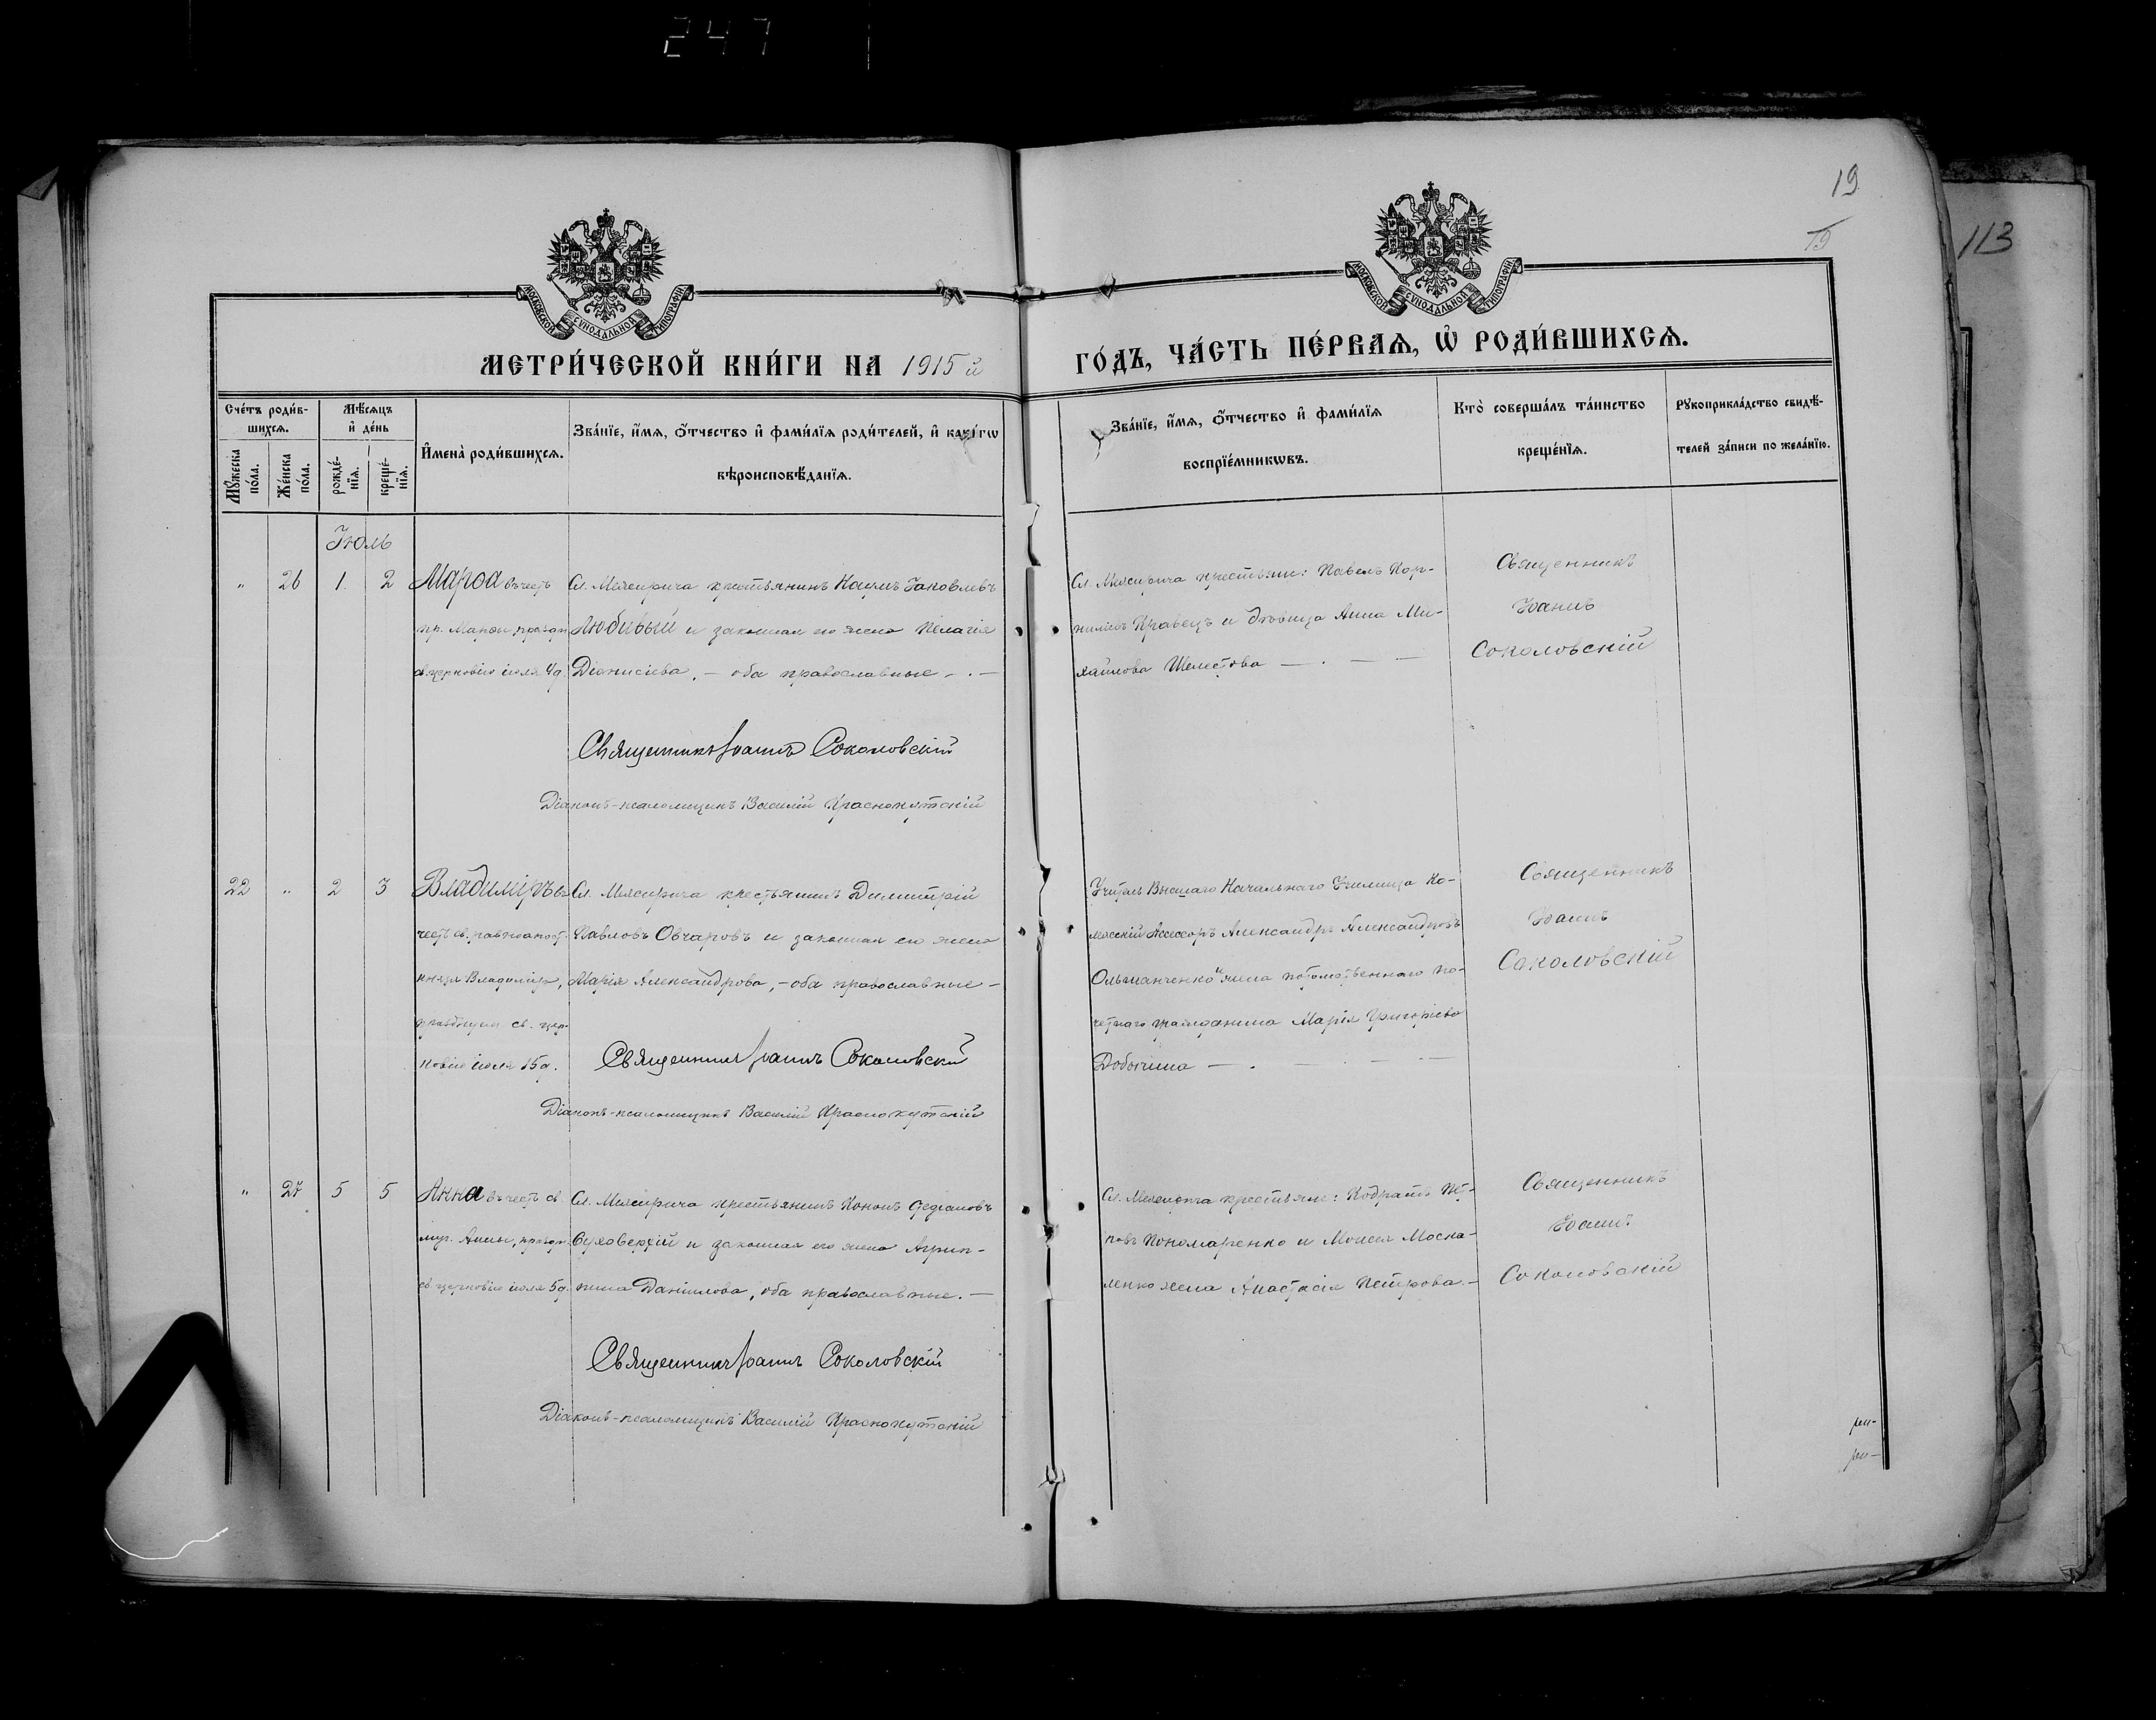 247
19
19
113
МОСКОВСКОЙ СѴНОДАЛЬНОЙ ТИПОГРАФІИ
МОСКОВСКОЙ СѴНОДАЛЬНОЙ ТИПОГРАФІИ
МЕТРИ́ЧЕСКОЙ КНИ́ГИ НА 1915 й
ГО́ДЪ, ЧА́СТЬ ПЕ́РВАѦ, Ѡ҆ РОДИ́ВШИХСѦ.
Сче́тъ роди́в-
шихсѧ.
Мꙋ́жеска по́ла.
Же́нска по́ла.
Мѣ́сѧцъ
и҆ де́нь
рожде́-
нїѧ.
креще́-
нїѧ.
И҆мена̀ роди́вшихсѧ.
Зва́нїе, и҆́мѧ, ѻ҆́тчество и҆ фами́лїѧ роди́телей, и҆ како́гѡ
вѣроисповѣ́данїѧ.
Зва́нїе, и҆́мѧ, ѻ҆́тчество и҆ фами́лїѧ
воспрїе́мникѡвъ.
Кто̀ соверша́лъ та́инство
креще́нїѧ.
Рꙋкоприкла́дство свидѣ́-
телей за́писи по жела́нїю.
Іюль
" 26 1. 2
Марѳа въ честь
пр. Марѳы, праздн.
св. церковію іюля 4 д.
Сл. Мелсирича крестьянинъ Наумъ Іаковлевъ
Любивый и законная его жена Пелагія
Діонисіева, – оба православные – . –
Священникъ Іоаннъ Соколовскій
Діаконъ-псаломщикъ Василій Краснокутскій
Сл. Мелсирича крестьяне: Павелъ Кор-
нилісвъ Кравецъ и дѣвица Анна Ми-
хайлова Шелестова – . – –
Священникъ
Іоаннъ
Соколовскій
22 " 2 3
Владиміръ въ
честь св. равноапост.
князя Владиміра,
празднуем. св. цер-
ковію іюля 15 д.
Сл. Мелсирича крестьянинъ Димитрій
Павловъ Овчаровъ и законная его жена
Марія Александрова, – оба православные –
Священникъ Іоаннъ Соколовскій
Діаконъ-псаломщикъ Василій Краснокутскій
Учитель Высшаго Начальнаго Училища Ко-
лежскій Ассесоръ Александръ Александровъ
Ольшанченко и жена потомственнаго по-
четнаго гражданина Марія Григоріева
Добычина – . – – –
Священникъ
Іоаннъ
Соколовскій
" 27 5 5
Анна въ честь св.
муч. Анны, праздн.
св. церковію іюля 5 д.
Сл. Мелсирича крестьянинъ Кононъ Стефановъ
Суховерхій и законная его жена Агрип-
пина Даніилова, оба православные. –
Священникъ Іоаннъ Соколовскій
Діаконъ-псаломщикъ Василій Краснокутскій
Сл. Мелсирича крестьяне: Кодратъ Пет-
ровъ Пономаренко и Моисея Моска-
ленко жена Анастасія Петрова. –
Священникъ
Іоаннъ
Соколовскій